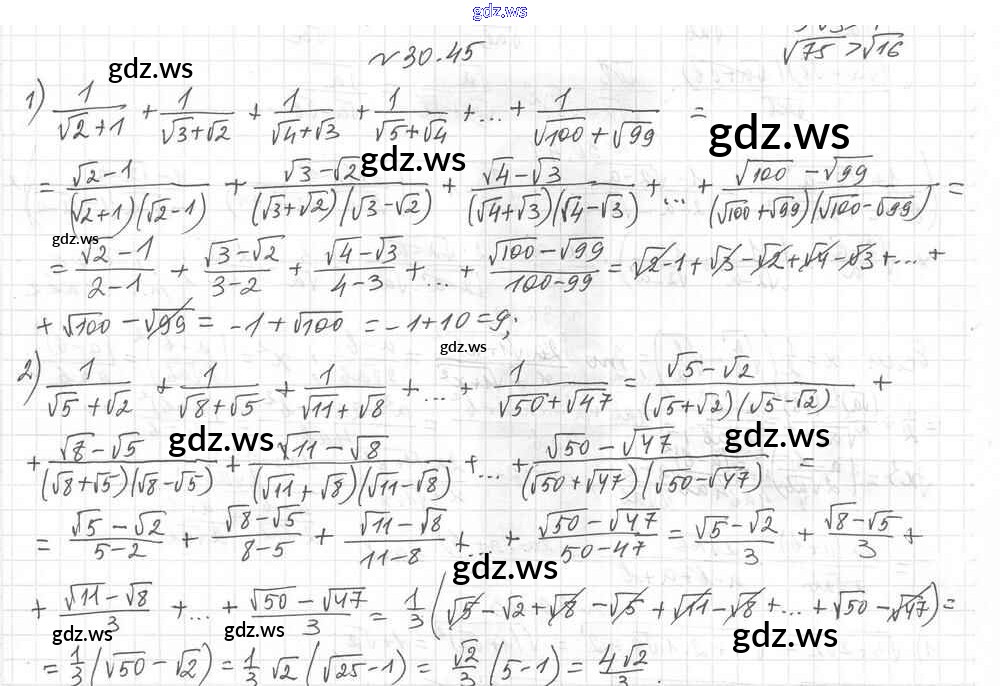 gdz.ws
№30.45
√75 > √16
gdz.ws
1) 1/(√2+1) + 1/(√3+√2) + 1/(√4+√3) + 1/(√5+√4) + ... + 1/(√100+√99) =
gdz.ws
gdz.ws
= (√2-1)/((√2+1)(√2-1)) + (√3-√2)/((√3+√2)(√3-√2)) + (√4-√3)/((√4+√3)(√4-√3)) + ... + (√100-√99)/((√100+√99)(√100-√99)) =
gdz.ws
= (√2-1)/(2-1) + (√3-√2)/(3-2) + (√4-√3)/(4-3) + ... + (√100-√99)/(100-99) = √2-1+√3-√2+√4-√3+...+
+ √100 - √99 = -1+√100 = -1+10=9;
gdz.ws
2) 1/(√5+√2) + 1/(√8+√5) + 1/(√11+√8) + ... + 1/(√50+√47) = (√5-√2)/((√5+√2)(√5-√2)) +
gdz.ws
gdz.ws
+ (√8-√5)/((√8+√5)(√8-√5)) + (√11-√8)/((√11+√8)(√11-√8)) + ... + (√50-√47)/((√50+√47)(√50-√47)) =
= (√5-√2)/(5-2) + (√8-√5)/(8-5) + (√11-√8)/(11-8) + ... + (√50-√47)/(50-47) = (√5-√2)/3 + (√8-√5)/3 +
gdz.ws
+ (√11-√8)/3 + ... + (√50-√47)/3 = 1/3(√5-√2+√8-√5+√11-√8+...+√50-√47) =
gdz.ws
gdz.ws
gdz.ws
= 1/3(√50-√2) = 1/3 √2(√25-1) = √2/3 (5-1) = 4√2/3